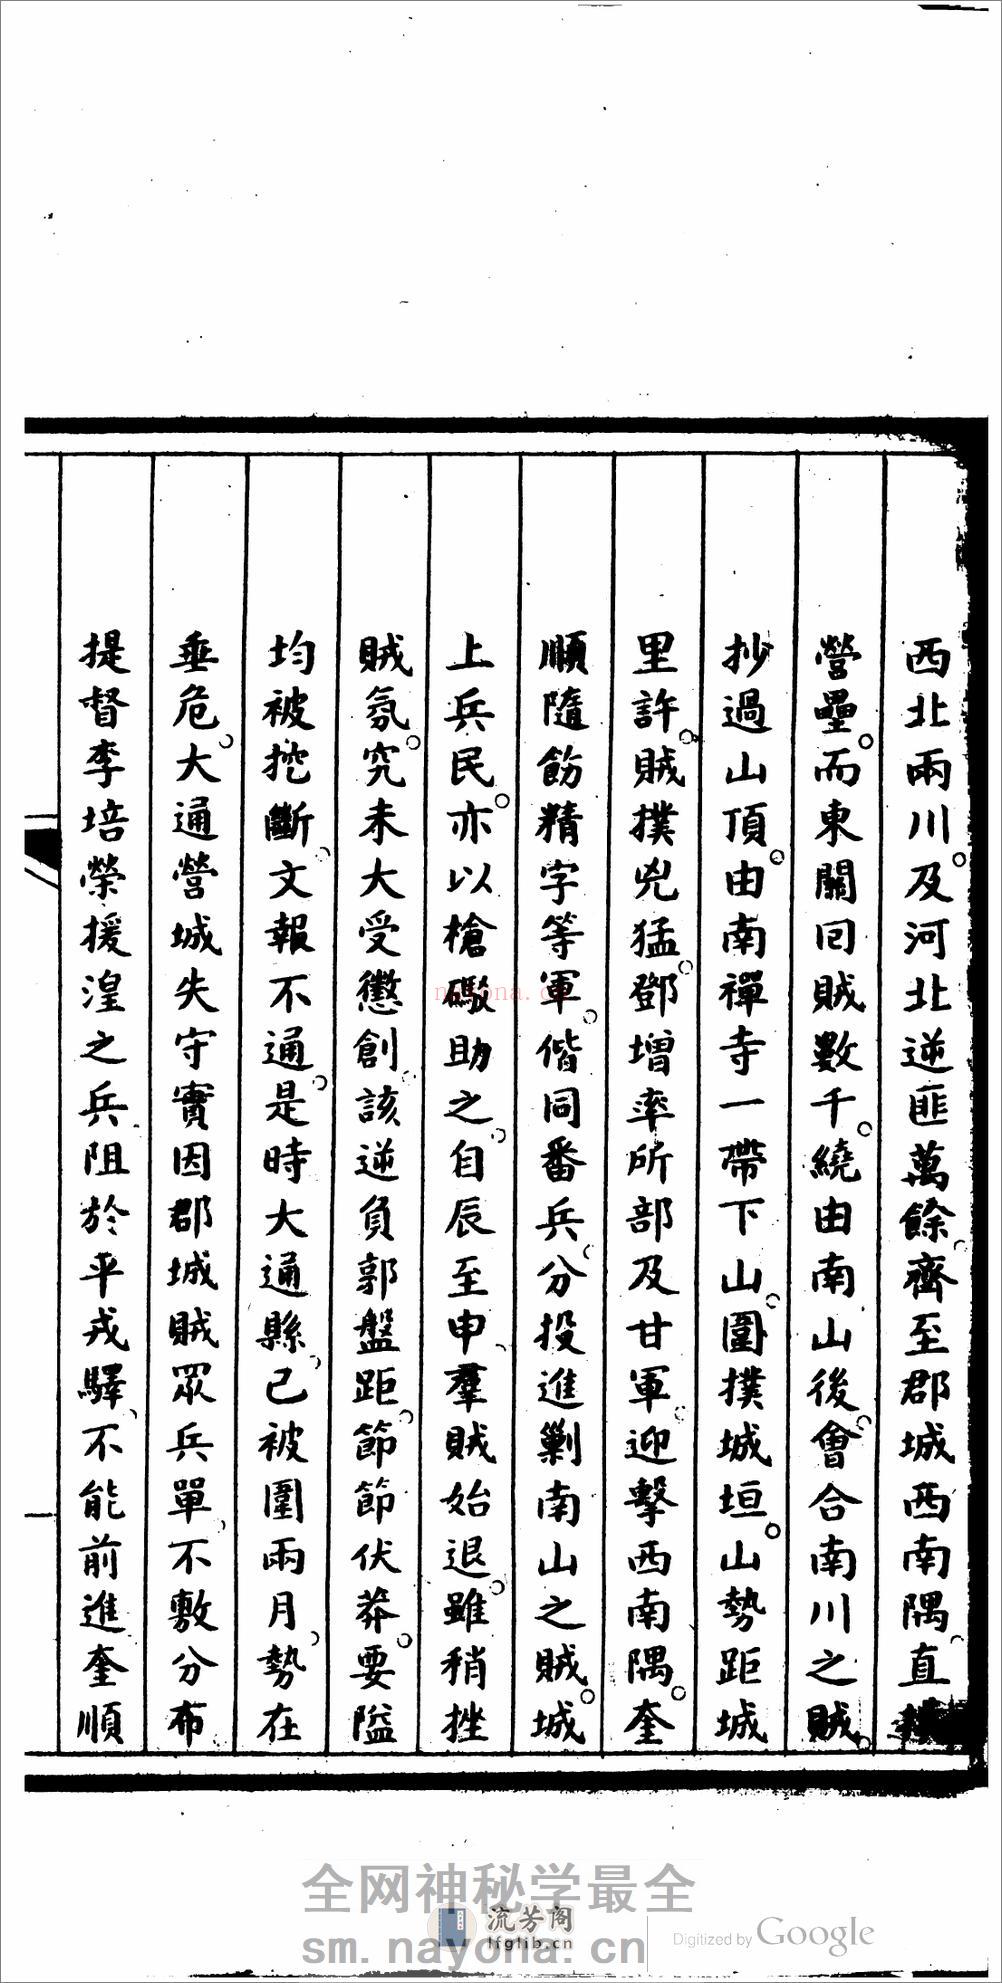 西北兩川。及河北逆匪萬餘。齊至郡城西南隅。直
營壘。而東關回賊數千。繞由南山後。會合南川之賊。
抄過山頂。由南禪寺一帶下山。圍撲城垣。山勢距城
里許。賊撲兇猛。鄧增率所部及甘軍。迎擊西南隅。奎
順隨飭精字等軍。偕同番兵。分投進剿南山之賊。城
上兵民。亦以槍礮助之。自辰至申。羣賊始退。雖稍挫
賊氛。究未大受懲創。該逆負郭盤距。節節伏莽。要隘
均被挖斷。文報不通。是時大通縣。已被圍兩月。勢在
垂危。大通營城失守。實因郡城賊眾兵單。不敷分布
提督李培榮援湟之兵。阻於平戎驛。不能前進。奎順
nayona.cn
全网神秘学最全
流芳阁
lfglib.cn
sm.nayona.cn
Digitized by Google